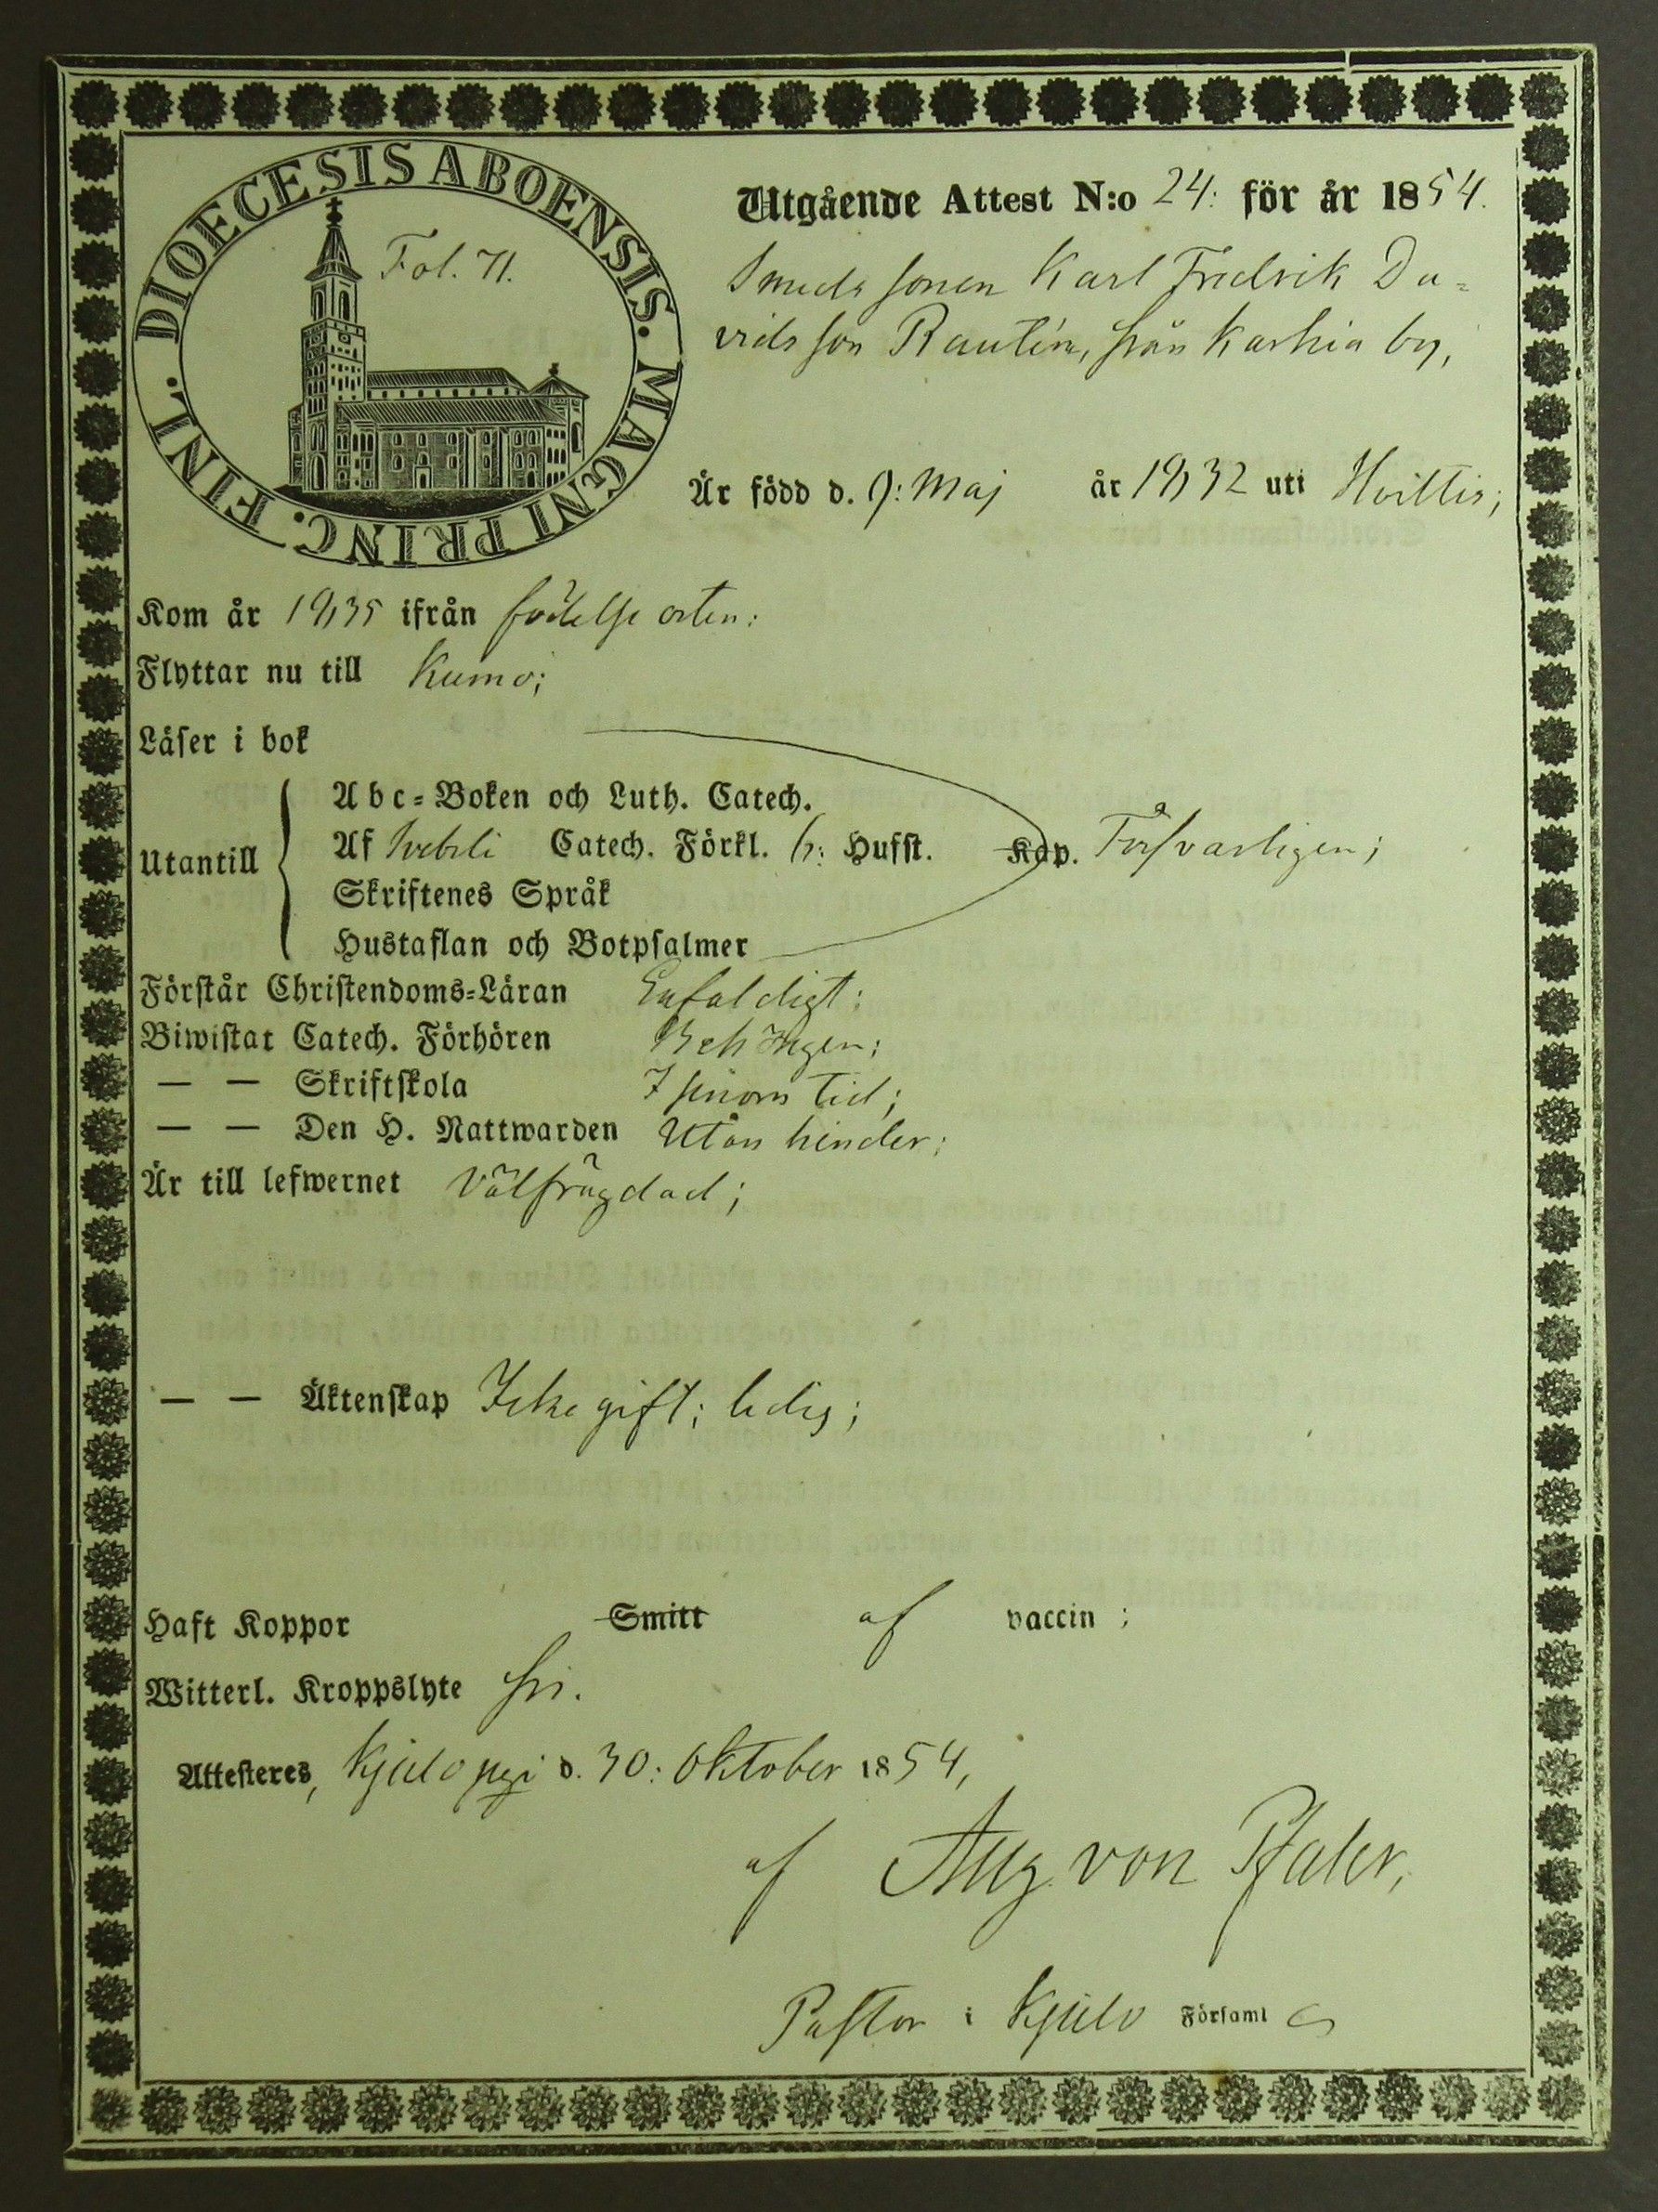 DIOECESIS ABOENSIS. MAGNI PRINC. FINL.
Fol. 71.
Utgående Attest N:o 24: för år 1854.
Smeds sonen Karl Fredrik Da=
vids son Rautén, från Karhia by,
Är född d. 9: Maj år 1832 uti Hvittis;
Kom år 1835 ifrån födelse orten:
Flyttar nu till Kumo;
Läser i bok
Utantill
Abc=Boken och Luth. Catech.
Af Svebeli Catech. Förkl. h: Hufst. Kap. Försvarligen;
Skriftenes Språk
Hustaflan och Botpsalmer
Förstår Christendoms=Läran Enfaldigt:
Biwistat Catech. Förhören
— — Skriftskola I sinom tid;
— — Den H. Nattwarden Utan hinder;
Är till lefwernet Välfrägdad;
— — Äktenskap Icke gift; ledig;
Haft Koppor Smitt af vaccin ;
Witterl. Kroppslyte fri.
Attesteres, Kjulo d. 30: Oktober 1854,
af Aug. von Pfaler,
Pastor i Kjulo Församl